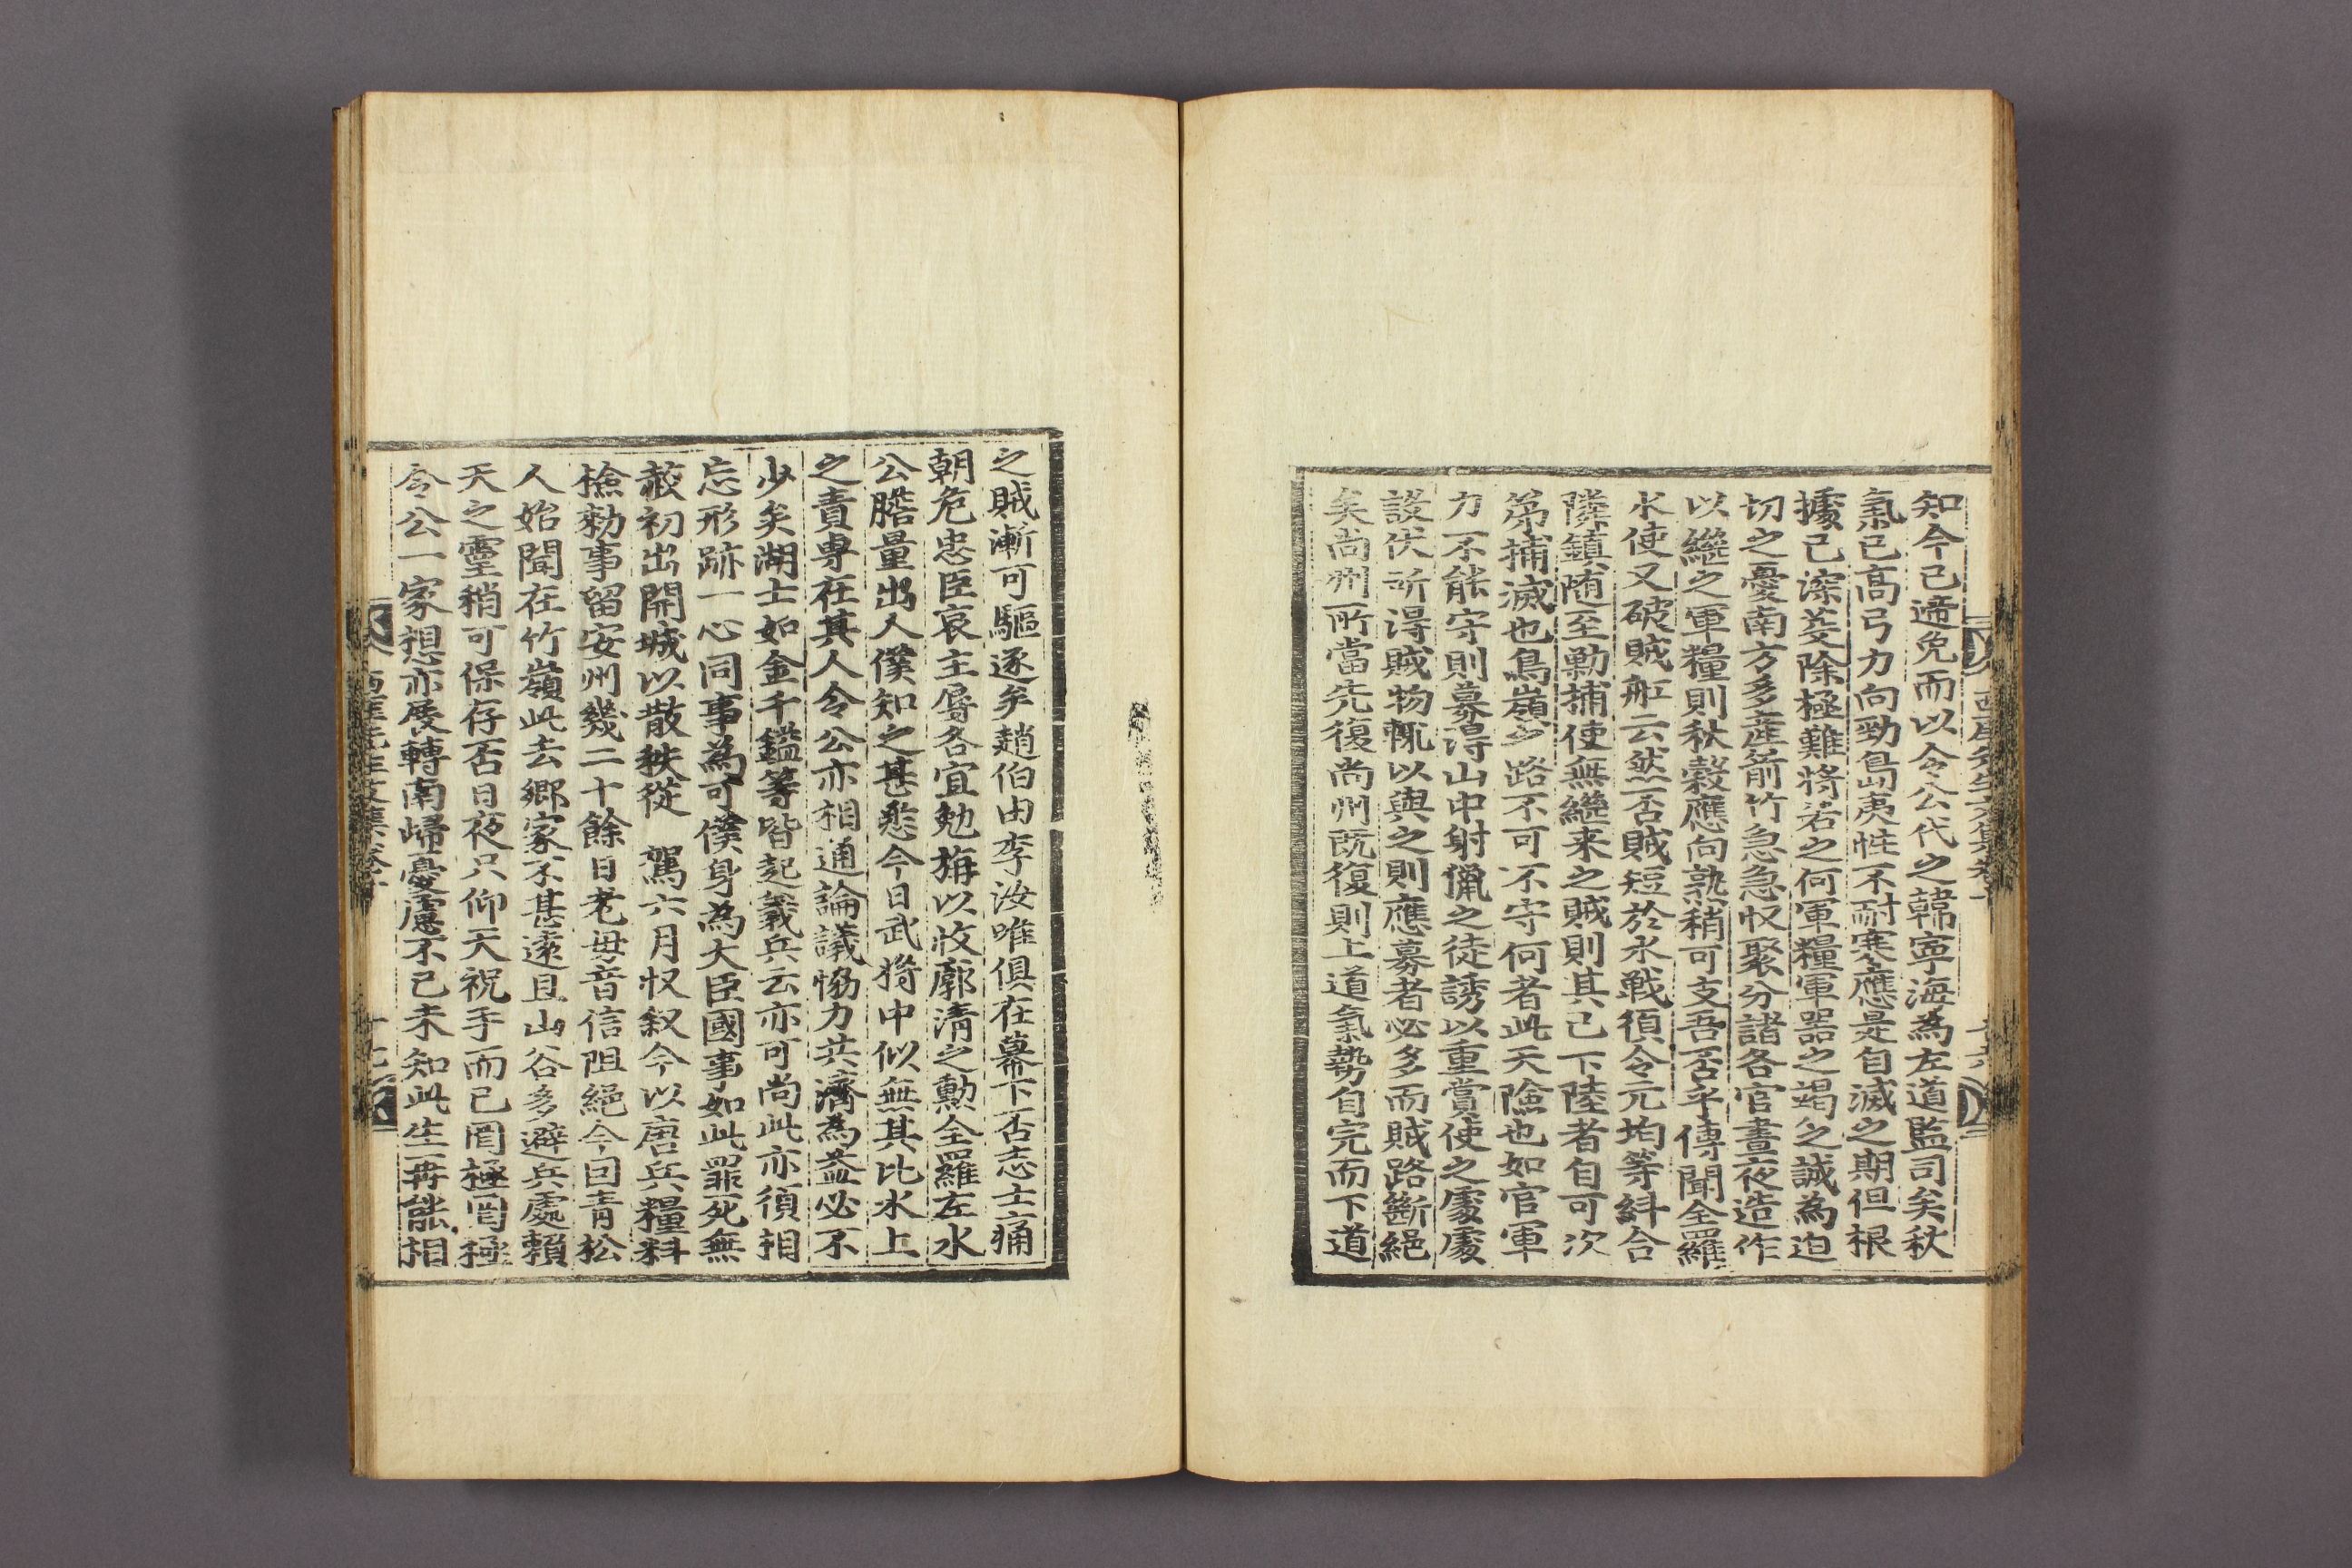 知今已遞免而以令公代之韓寧海為左道監司矣秋
氣已高弓力向勁島夷性不耐寒應是自滅之期但根
據已深芟除極難將若之何軍糧軍器之竭乏誠為迫
切之憂南方多產箭竹急急收聚分諸各官晝夜造作
以繼之軍糧則秋穀應向熟稍可支吾否乎傳聞全羅
水使又破賊舡云然否賊短於水戰須令元均等糾合
隣鎮随至勦捕使無繼来之賊則其已下陸者自可次
苐捕滅也鳥嶺之路不可不守何者此天險也如官軍
力不能守則募得山中射獵之徒誘以重賞使之處處
設伏所得賊物輒以與之則應募者必多而賊路斷絕
矣尚州所當先復尚州既復則上道氣勢自完而下道
之賊漸可驅逐矣趙伯由李汝唯俱在幕下否志士痛
朝危忠臣哀主辱各宜勉旃以收廓清之勳全羅左水
公膽量出人僕知之甚悉今日武將中似無其比水上
之責專在其人令公亦相通論議恊力共濟為益必不
少矣湖士如金千鎰等皆起義兵云亦可尚此亦須相
忘形跡一心同事為可僕身為大臣國事如此罪死無
赦初出開城以散秩從　駕六月收敘今以唐兵糧料
撿勑事留安州幾二十餘日老毋音信阻絕今因青松
人始聞在竹嶺此去鄉家不甚遠且山谷多避兵處賴
天之靈稍可保存否日夜只仰天祝手而已罔極罔極
令公一家想亦展轉南歸憂慮不已未知此生再能相
西厓先生文集卷十　十七